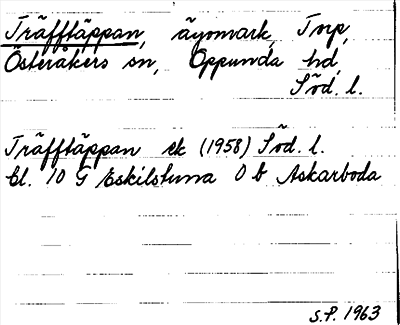 Träfftäppan, äyomark, Torp,
Österåkers sn, Oppunda hd,
Söd. l.
Träfftäppan ek (1958) Söd. l.
bl. 10 G Eskilstuna 0 b Askarboda
S.P. 1963